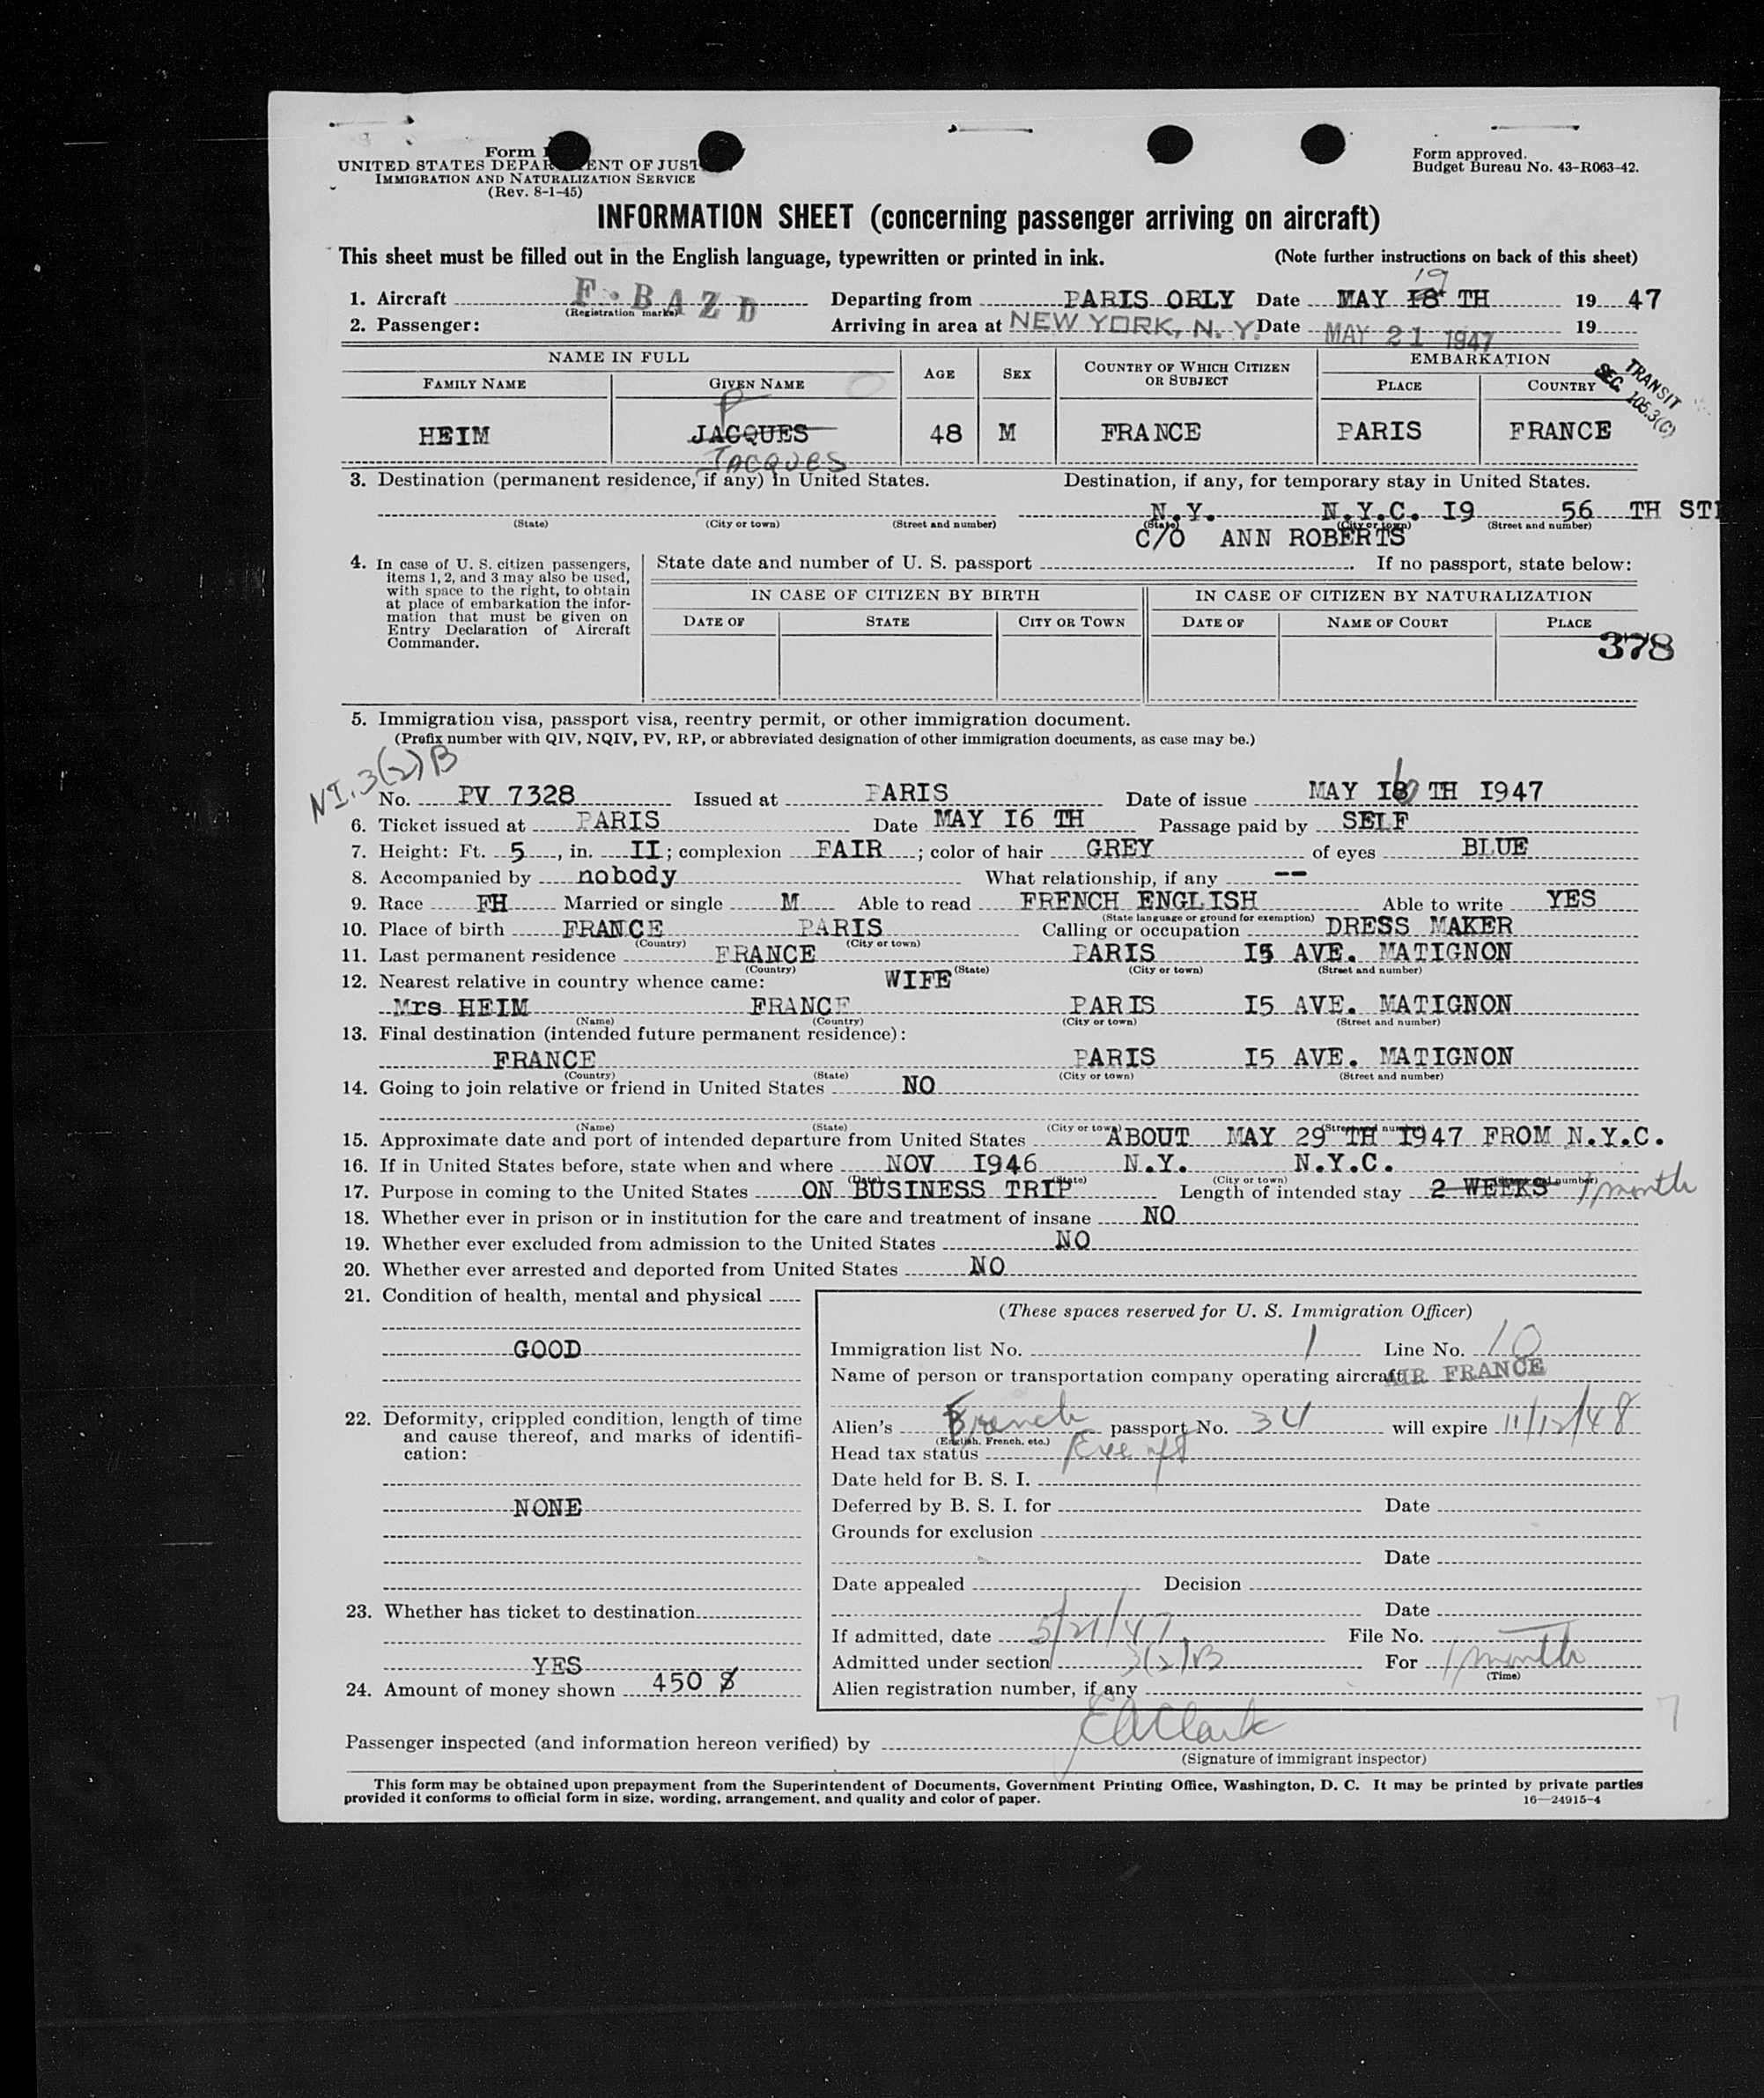 Form
UNITED STATES DEPARTMENT OF JUST
IMMIGRATION AND NATURALIZATION SERVICE
(Rev. 8-1-45)
Form approved.
Budget Bureau No. 43-R063-42.
INFORMATION SHEET (concerning passenger arriving on aircraft)
This sheet must be filled out in the English language, typewritten or printed in ink. (Note further instructions on back of this sheet)
1. Aircraft F-BAZD Departing from PARIS ORLY Date MAY I8 TH 19 1947
(Registration marks)
2. Passenger: Arriving in area at NEW YORK, N. Y. Date MAY 21 1947 19
NAME IN FULL AGE SEX COUNTRY OF WHICH CITIZEN OR SUBJECT EMBARKATION
FAMILY NAME GIVEN NAME PLACE COUNTRY
TRANSIT
SEC. 105.3(C)
P
HEIM JACQUES 48 M FRANCE PARIS FRANCE
JACQUES
3. Destination (permanent residence, if any) in United States. Destination, if any, for temporary stay in United States.
N.Y. N.Y.C. I9 56 TH ST
(State) (City or town) (Street and number) (State) (City or town) (Street and number)
C/O ANN ROBERTS
4. In case of U. S. citizen passengers, items 1, 2, and 3 may also be used, with space to the right, to obtain at place of embarkation the information that must be given on Entry Declaration of Aircraft Commander.
State date and number of U. S. passport . If no passport, state below:
IN CASE OF CITIZEN BY BIRTH IN CASE OF CITIZEN BY NATURALIZATION
DATE OF STATE CITY OR TOWN DATE OF NAME OF COURT PLACE
378
5. Immigration visa, passport visa, reentry permit, or other immigration document.
(Prefix number with QIV, NQIV, PV, RP, or abbreviated designation of other immigration documents, as case may be.)
NI. 3(2)B
No. PV 7328 Issued at PARIS Date of issue MAY I6 TH I947
6. Ticket issued at PARIS Date MAY I6 TH Passage paid by SELF
7. Height: Ft. 5, in. II; complexion FAIR; color of hair GREY of eyes BLUE
8. Accompanied by nobody What relationship, if any --
9. Race FH Married or single M Able to read FRENCH ENGLISH Able to write YES
(State language or ground for exemption)
10. Place of birth FRANCE PARIS Calling or occupation DRESS MAKER
(Country) (City or town)
11. Last permanent residence FRANCE PARIS I5 AVE. MATIGNON
(Country) (State) (City or town) (Street and number)
12. Nearest relative in country whence came: WIFE
Mrs HEIM FRANCE PARIS I5 AVE. MATIGNON
(Name) (Country) (City or town) (Street and number)
13. Final destination (intended future permanent residence):
FRANCE PARIS I5 AVE. MATIGNON
(Country) (State) (City or town) (Street and number)
14. Going to join relative or friend in United States NO
(Name) (State) (City or town) (Street and number)
15. Approximate date and port of intended departure from United States ABOUT MAY 29 TH I947 FROM N.Y.C.
16. If in United States before, state when and where NOV I946 N.Y. N.Y.C.
(Date) (State) (City or town) (Street and number)
17. Purpose in coming to the United States ON BUSINESS TRIP Length of intended stay 2 WEEKS 1 month
18. Whether ever in prison or in institution for the care and treatment of insane NO
19. Whether ever excluded from admission to the United States NO
20. Whether ever arrested and deported from United States NO
21. Condition of health, mental and physical
GOOD
22. Deformity, crippled condition, length of time and cause thereof, and marks of identification:
NONE
23. Whether has ticket to destination
YES
24. Amount of money shown 450 $
(These spaces reserved for U. S. Immigration Officer)
Immigration list No. 1 Line No. 10
Name of person or transportation company operating aircraft AIR FRANCE
Alien's French passport No. 34 will expire 11/12/48
(English, French, etc.)
Head tax status Exempt
Date held for B. S. I.
Deferred by B. S. I. for Date
Grounds for exclusion
Date
Date appealed Decision
Date
If admitted, date 5/21/47 File No.
Admitted under section 3(2)B For 1 month
(Time)
Alien registration number, if any
Passenger inspected (and information hereon verified) by EAClark
(Signature of immigrant inspector)
This form may be obtained upon prepayment from the Superintendent of Documents, Government Printing Office, Washington, D. C. It may be printed by private parties
provided it conforms to official form in size, wording, arrangement, and quality and color of paper. 16—24915-4